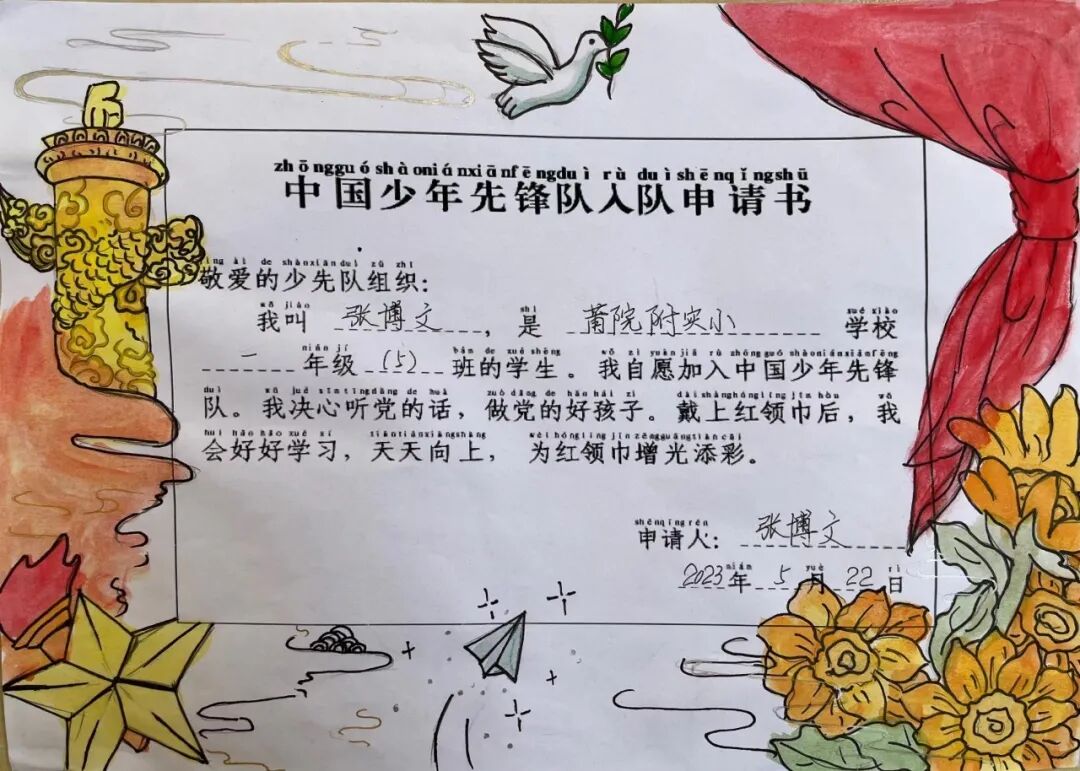 zhōngguóshàoniánxiānfēngduì rù duìshēnqǐngshū
中国少年先锋队入队申请书
jìng ài de shàoxiānduì zǔ zhī
敬爱的少先队组织：
wǒ jiào shì xué xiào
我叫 张博文，是 莆院附实小 学校
nián jí bān de xué shēng wǒ zì yuàn jiā rù zhōng guó shàoniánxiānfēng
一 年级 (5) 班的学生。我自愿加入中国少年先锋
duì wǒ jué xīn tīng dǎng de huà zuò dǎng de hǎo hái zi dài shàng hóng lǐng jīn hòu wǒ
队。我决心听党的话，做党的好孩子。戴上红领巾后，我
huì hǎo hǎo xué xí tiān tiān xiàng shàng wèi hóng lǐng jīn zēng guāng tiān cǎi
会好好学习，天天向上， 为红领巾增光添彩。
shēnqǐngrén
申请人： 张博文
nián yuè rì
2023年 5 月 22 日